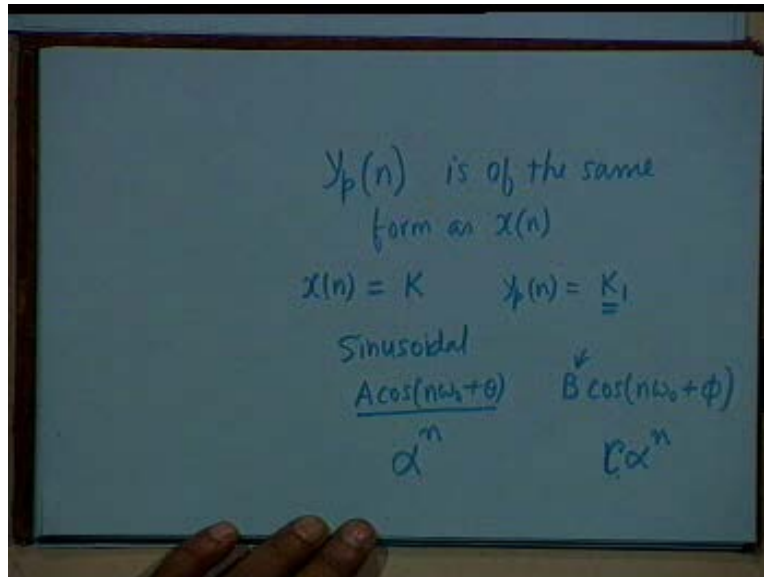 yp(n) is of the same
form as x(n)
x(n) = K yp(n) = K₁
Sinusoidal
A cos(nω₀+θ) B cos(nω₀+ϕ)
αⁿ Cαⁿ